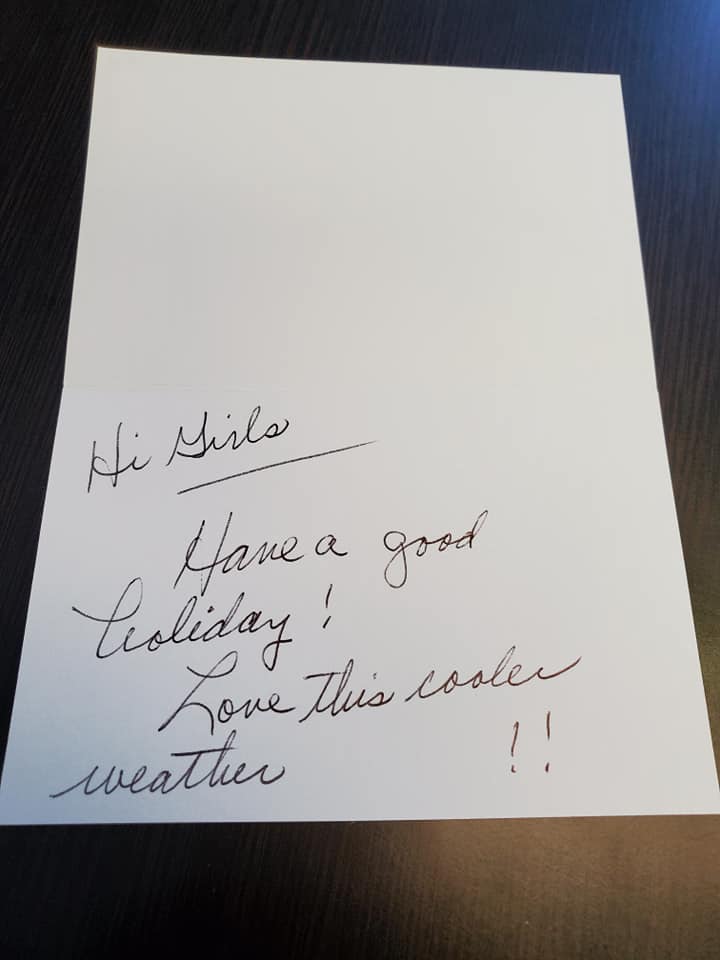 Hi Girls
Have a good
holiday!
Love this cooler
weather !!